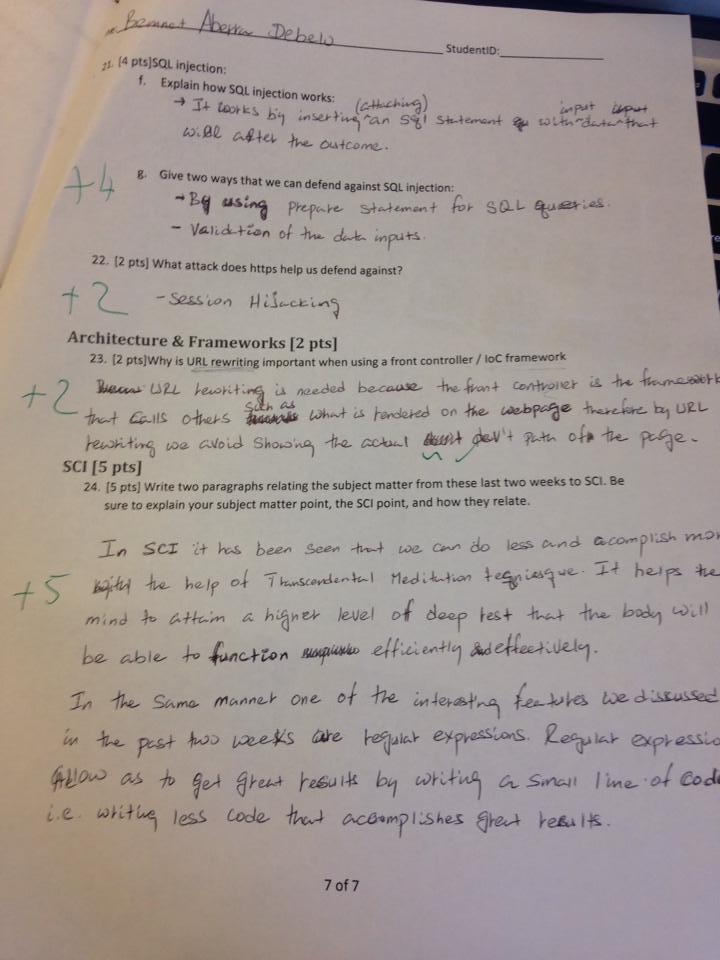 Bemnet Aberra Debelo
StudentID:
21. [4 pts]SQL injection:
f. Explain how SQL injection works:
→ It works by inserting (attaching) an Sql statement with input data that
will alter the outcome.
+4
g. Give two ways that we can defend against SQL injection:
→ By using prepare statement for SQL queries.
- Validation of the data inputs.
22. [2 pts] What attack does https help us defend against?
+2
- Session Hijacking
Architecture & Frameworks [2 pts]
23. [2 pts]Why is URL rewriting important when using a front controller / IoC framework
+2
URL rewriting is needed because the front controller is the framework
that calls others such as what is rendered on the webpage therefore by URL
rewriting we avoid showing the actual path of the page.
SCI [5 pts]
24. [5 pts] Write two paragraphs relating the subject matter from these last two weeks to SCI. Be
sure to explain your subject matter point, the SCI point, and how they relate.
In SCI it has been seen that we can do less and acomplish mor
+5
the help of Transcendental Meditation . It helps the
mind to attain a higher level of deep rest that the body will
be able to function efficiently and effectively.
In the same manner one of the interesting features we discussed
in the past two weeks are regular expressions. Regular expressio
Allow as to get great results by writing a small line of cod
i.e. writing less code that accomplishes great results.
7 of 7